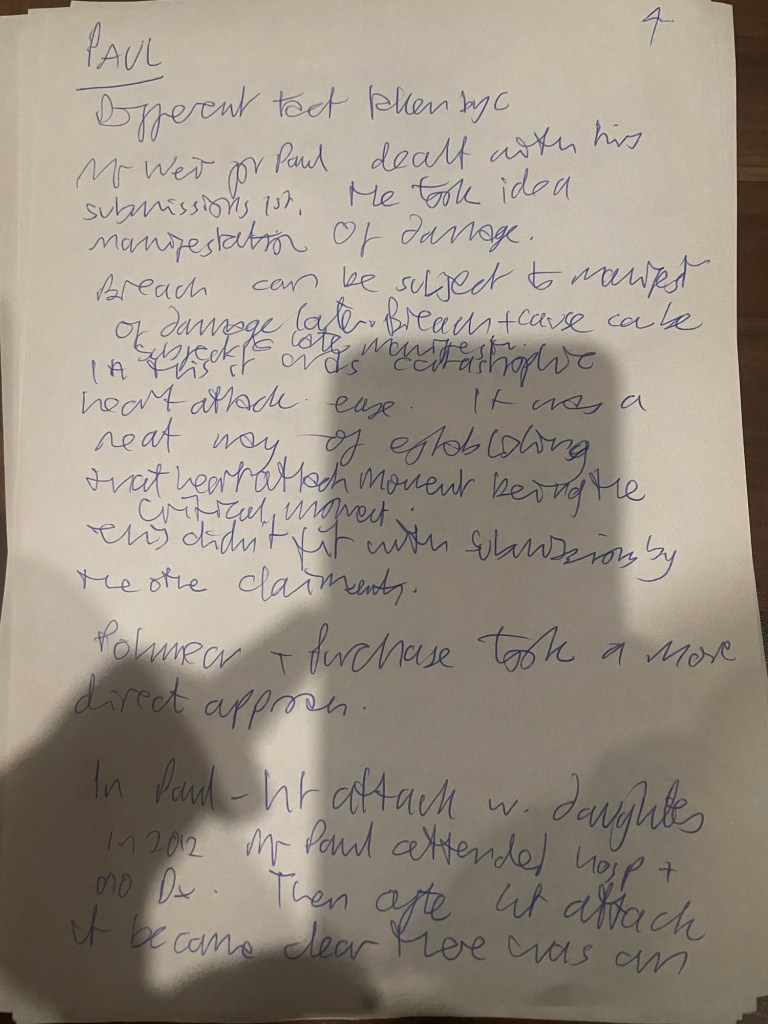 4
PAUL
Different tact taken by C
Mr Weir for Paul dealt with his
submissions 1st. He took idea
manifestation of damage.
Breach can be subject to manifest
of damage later. Breach + cause ca be
subject to late manifest.
In this it was catastrophic
heart attack case. It was a
neat way of establishing
that heart attack moment being the
critical moment.
This didn't fit with submissions by
the othe claimants.
Polmear + Purchase took a more
direct approach.
In Paul - ht attack w. daughters
in 2012 Mr Paul attended hosp +
no Dx. Then afte ht attack
it became clear there was an